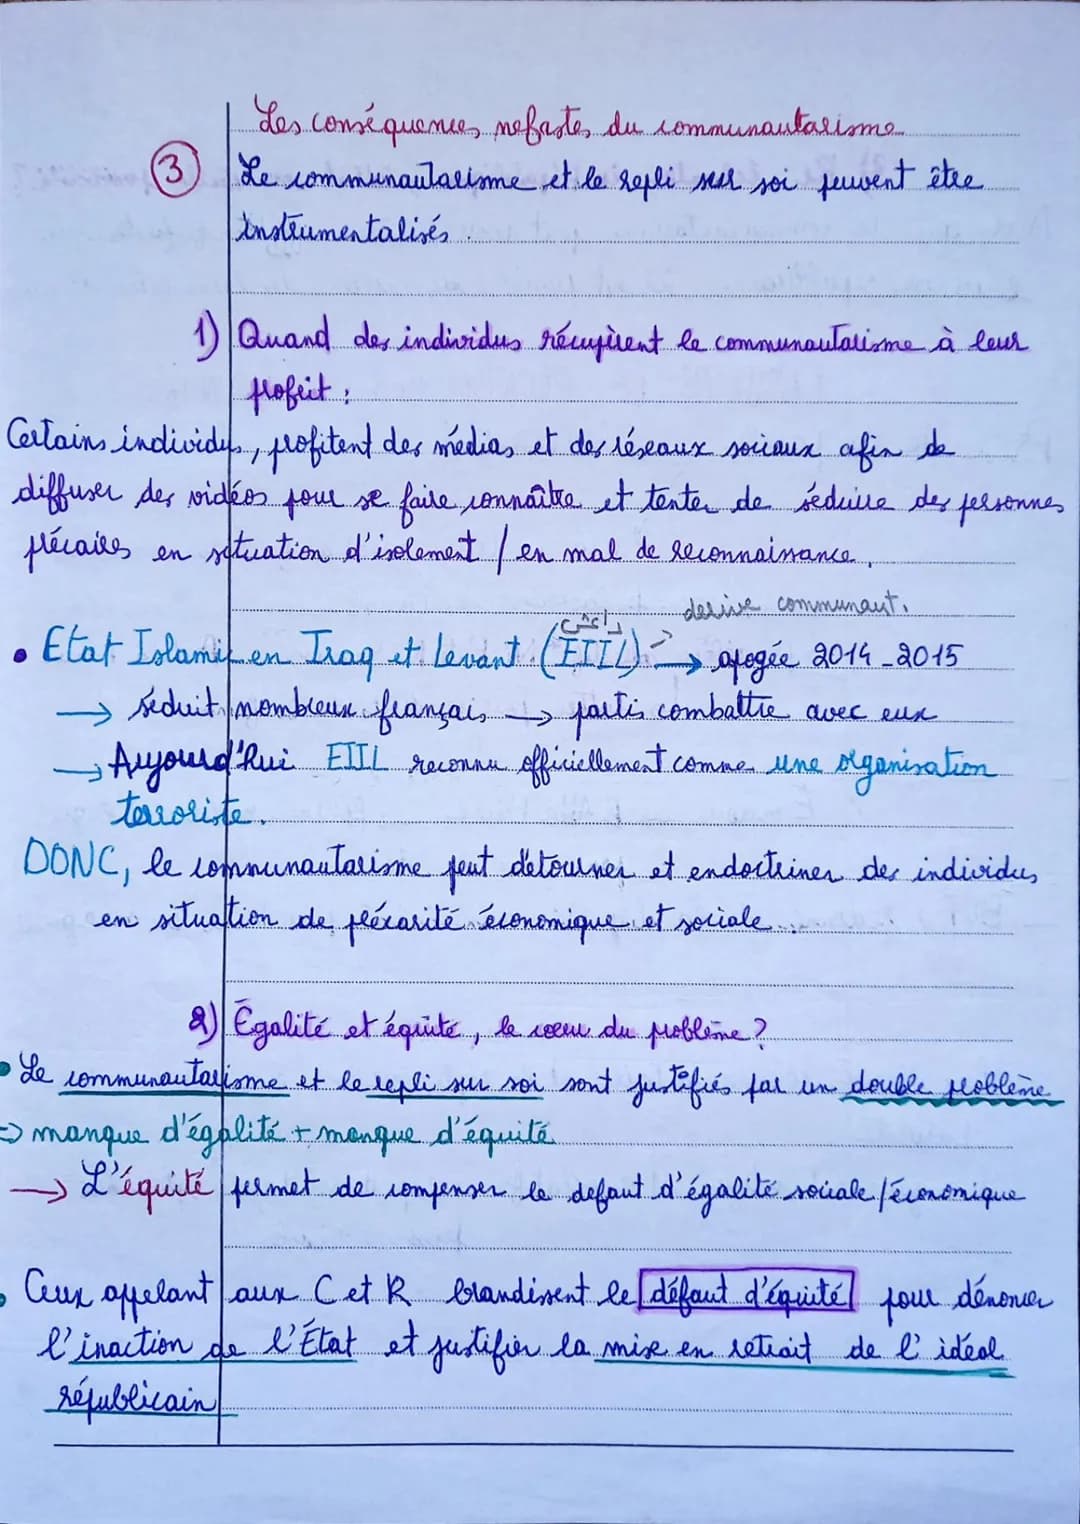 Les conséquences nefastes du communautarisme
③ Le communautarisme et le repli sur soi peuvent être
instrumentalisés.
1) Quand des individus récupèrent le communautarisme à leur
profit :
Certains individus, profitent des médias et des réseaux sociaux afin de
diffuser des vidéos pour se faire connaître et tenter de séduire des personnes
précaires en situation d'isolement / en mal de reconnaissance.
داعش => derive communaut.
• Etat Islamiq en Iraq et Levant (EIIL) → apogée 2014-2015
→ séduit nombreux français → partis combattre avec eux
→ Aujourd'hui EIIL reconnu officiellement comme une organisation
terroriste.
DONC, le communautarisme peut détourner et endoctriner des individus
en situation de précarité économique et sociale...
2) Égalité et équité, le coeur du problème ?
• Le communautarisme et le repli sur soi sont justifiés par un double problème
=> manque d'égalité + manque d'équité
→ L'équité permet de compenser le defaut d'égalité sociale/économique
• Ceux appelant aux C et R brandissent le défaut d'équité pour dénoncer
l'inaction de l'État et justifier la mise en retrait de l'idéal
républicain